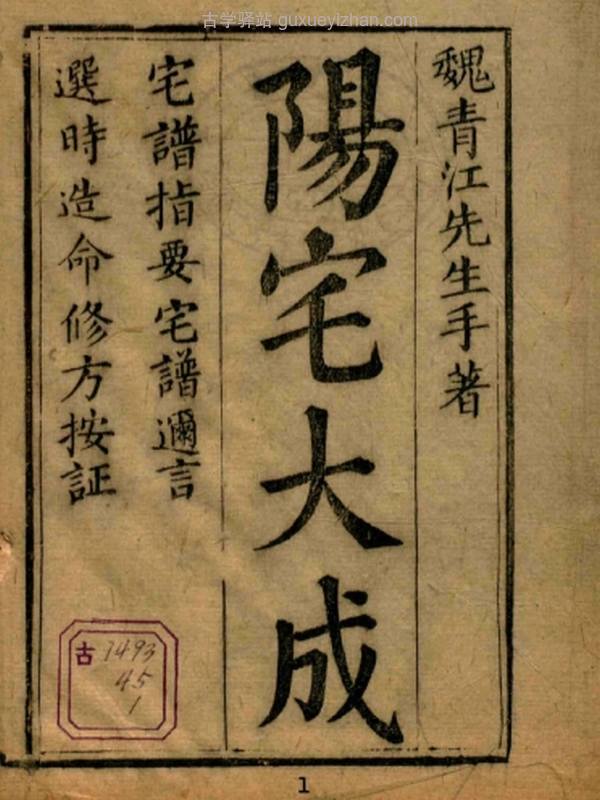 古学驿站 guxueyizhan.com
魏青江先生手著
陽宅大成
宅譜指要宅譜邇言
選時造命修方按証
古 7493
45
1
1